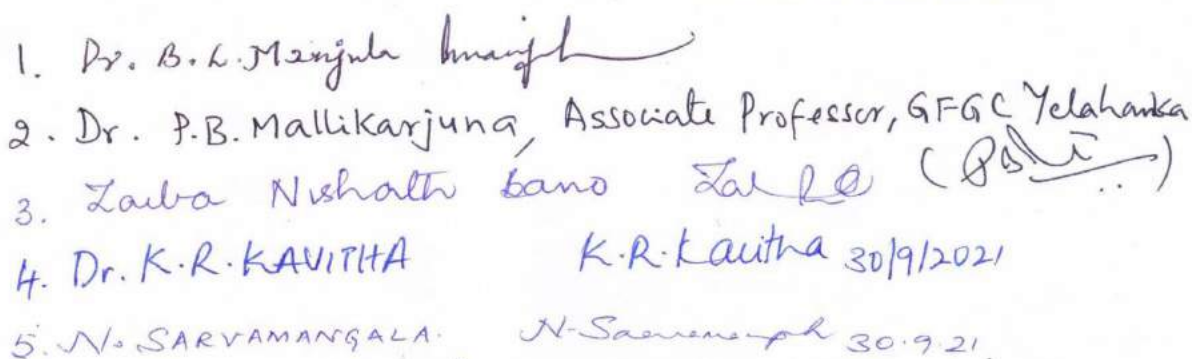 1. Dr. B.L. Manjula
2. Dr. P.B. Mallikarjuna, Associate Professor, GFGC Yelahanka
3. Zaiba Nishath bano
4. Dr. K.R. KAVITHA K.R. Kavitha 30/9/2021
5. N. SARVAMANGALA. 30.9.21